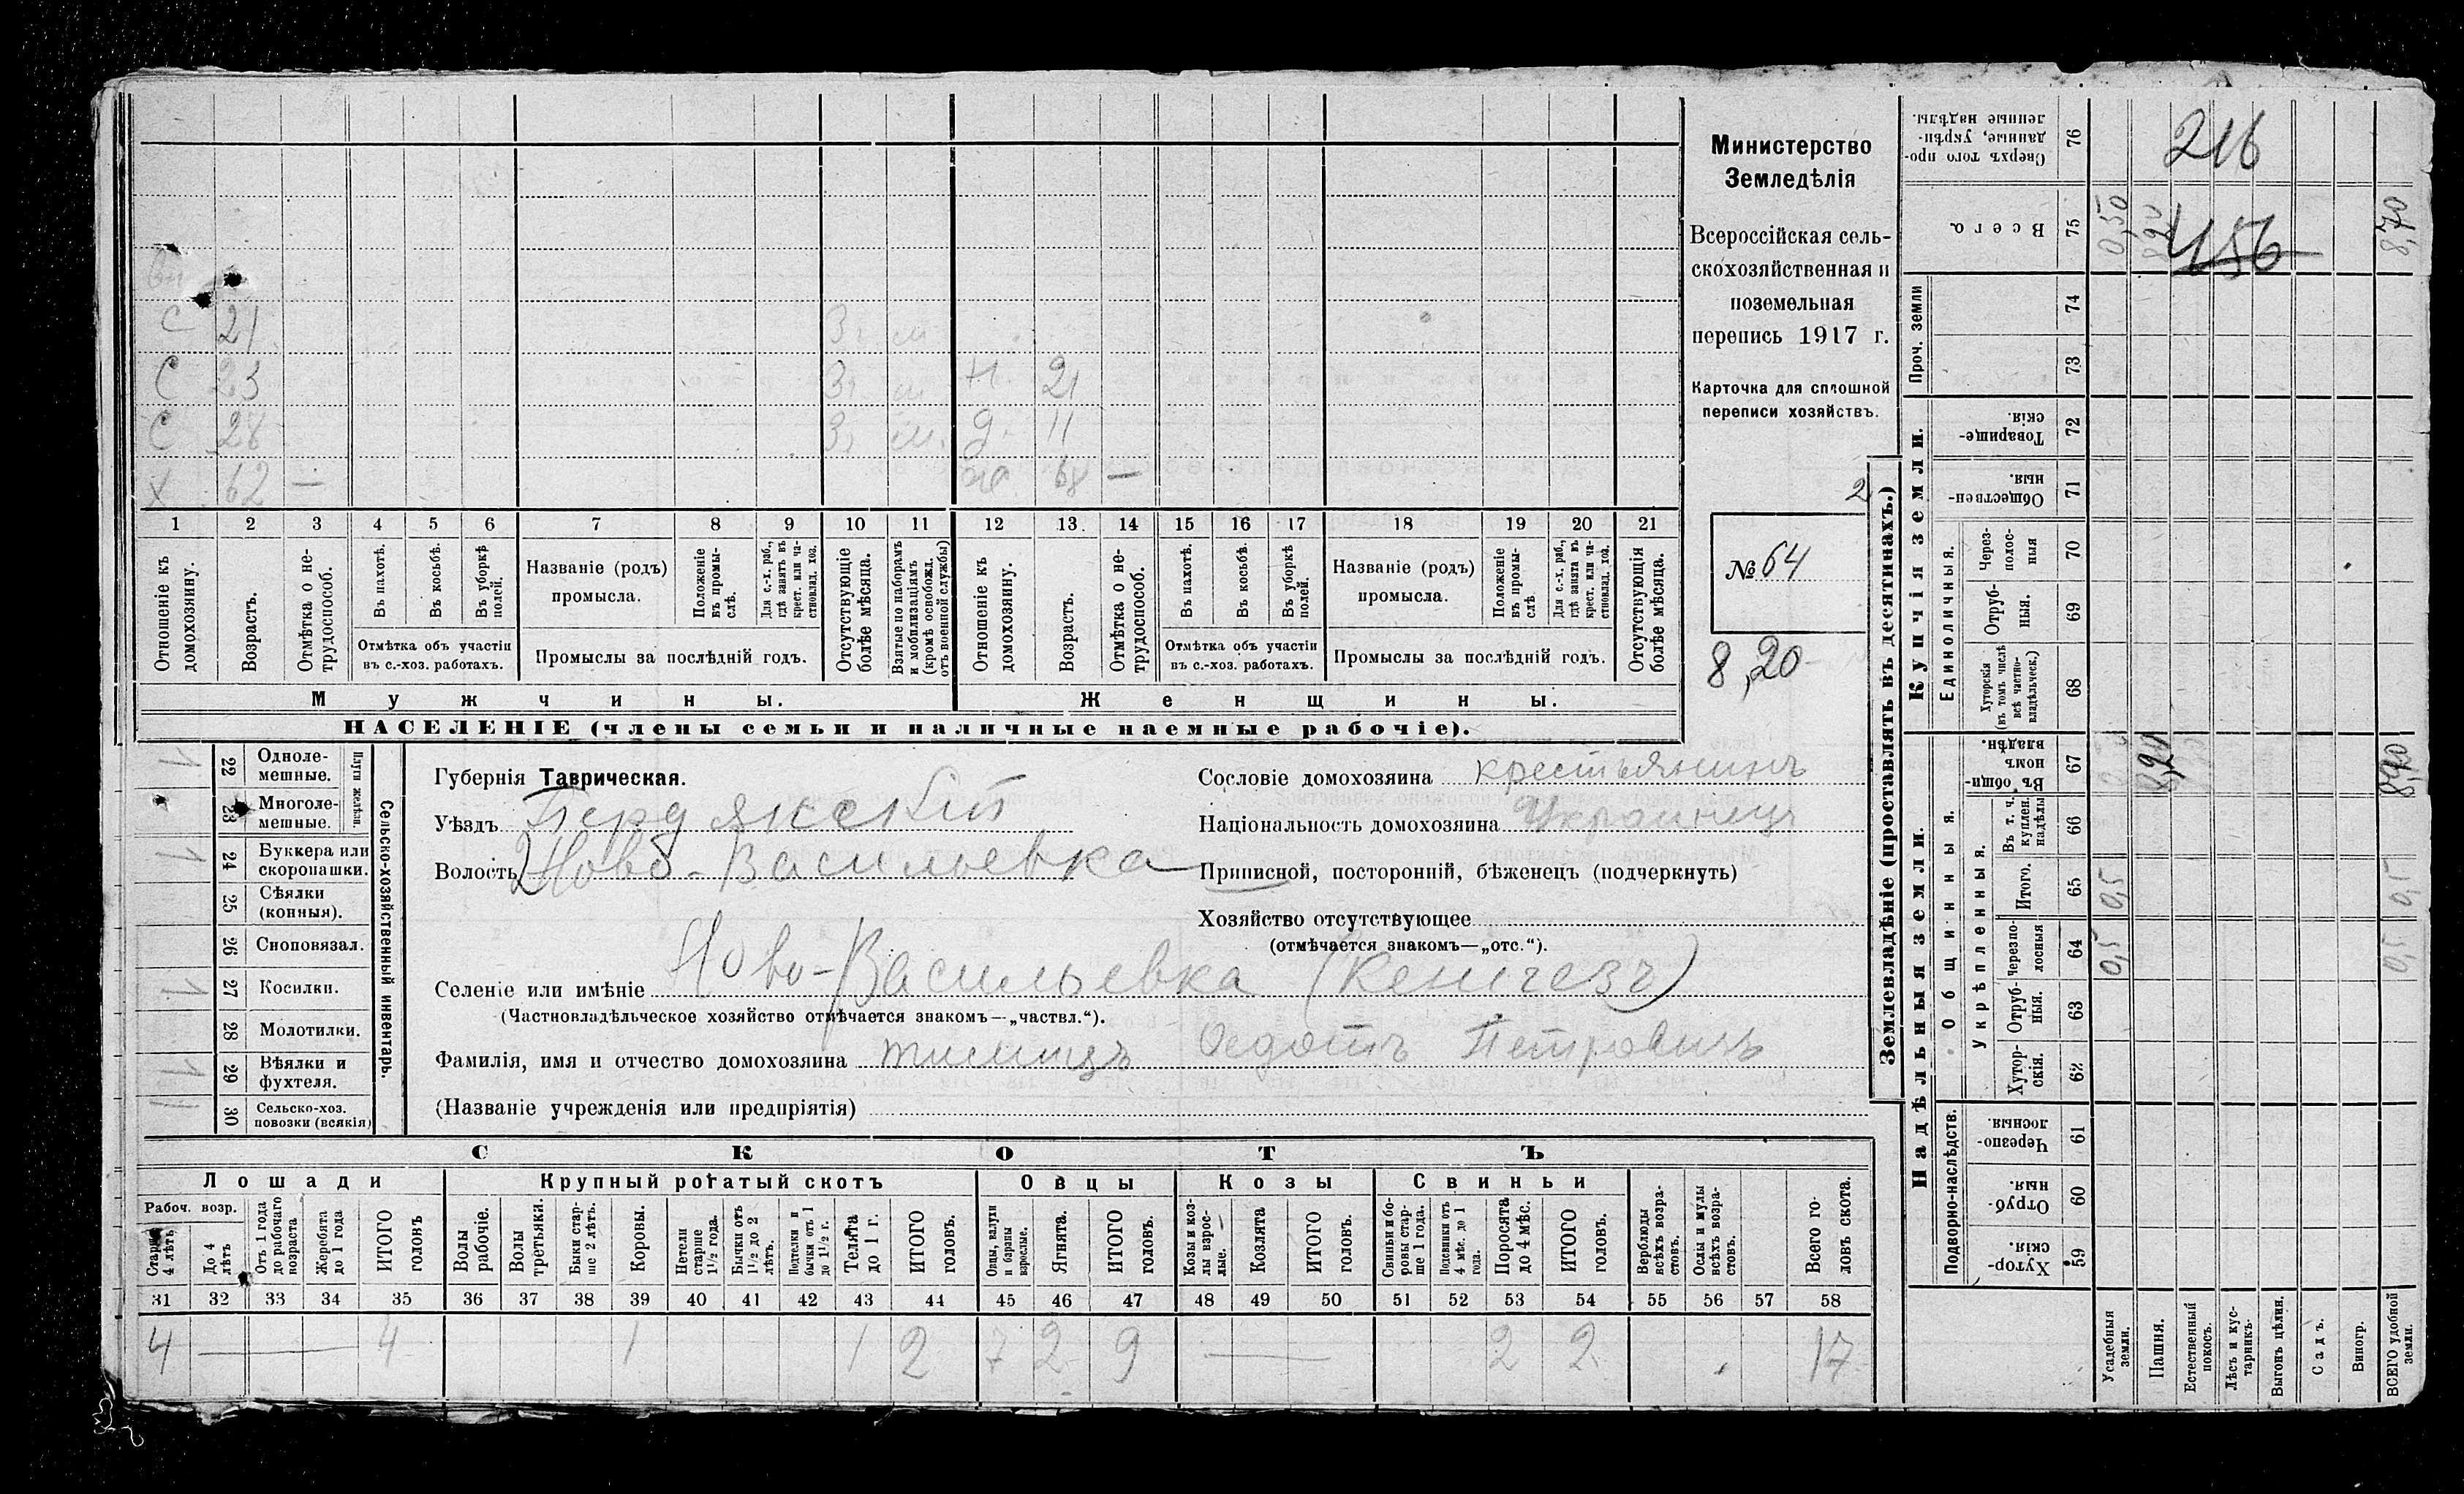 Министерство
Земледѣлія
Всероссійская сель-
скохозяйственная и
поземельная
перепись 1917 г.
Карточка для сплошной
переписи хозяйствъ.
2
№ 64
8,20
С 21 3. м
С 23 3. м Н 21
С 28 3. м. д. 11
Х 62 — 68 —
1 2 3 4 5 6 7 8 9 10 11 12 13. 14 15 16 17 18 19 20 21
Отношеніе къ домохозяину.
Возрастъ.
Отмѣтка о не-трудоспособ.
Въ пахотѣ.
Въ косьбѣ.
Въ уборкѣ полей.
Отмѣтка объ участіи
въ с.-хоз. работахъ.
Названіе (родъ)
промысла.
Положеніе въ промы-слѣ.
Для с.-х. раб., гдѣ занятъ въ крест. или ча-ствовлад. хоз.
Промыслы за послѣдній годъ.
Отсутствующіе болѣе мѣсяца.
Взятые по наборамъ и мобилизаціямъ (кромѣ освобожд. отъ военной службы)
Отношеніе къ домохозяину.
Возрастъ.
Отмѣтка о не-трудоспособ.
Въ пахотѣ.
Въ косьбѣ.
Въ уборкѣ полей.
Отмѣтка объ участіи
въ с.-хоз. работахъ.
Названіе (родъ)
промысла.
Положеніе въ промы-слѣ
Для с.-х. раб., гдѣ занята въ крест. или ча-ствовлад. хоз.
Промыслы за послѣдній годъ.
Отсутствующія болѣе мѣсяца.
Мужчины. Женщины.
НАСЕЛЕНІЕ (члены семьи и наличные наемные рабочіе).
1 22 Одноле-мешные.
23 Многоле-мешные.
Плуги желѣзн.
1 24 Буккера или скоропашки.
25 Сѣялки (конныя).
26 Сноповязал.
1 27 Косилки.
28 Молотилки.
1 29 Вѣялки и фухтеля.
1 30 Сельско-хоз. повозки (всякія)
Сельско-хозяйственный инвентарь.
Губернія Таврическая.
Уѣздъ Бердянскій
Волость Ново-Васильевка
Сословіе домохозяина крестьянинъ
Національность домохозяина Украинецъ
Приписной, посторонній, бѣженецъ (подчеркнуть)
Хозяйство отсутствующее
(отмѣчается знакомъ—„отс.“).
Селеніе или имѣніе Ново-Васильевка (Кенегезъ)
(Частновладѣльческое хозяйство отмѣчается знакомъ—„частвл.“).
Фамилія, имя и отчество домохозяина Федотъ Петровичъ
(Названіе учрежденія или предпріятія)
СКОТЪ
Лошади Крупный рогатый скотъ Овцы Козы Свиньи
Рабоч. возр.
Старше 4 лѣтъ
До 4 лѣтъ
Отъ 1 года до рабочаго возраста
Жеребята до 1 года
ИТОГО головъ
Волы рабочіе.
Волы третьяки.
Быки стар-ше 2 лѣтъ.
Коровы.
Нетели старше 1½ года.
Бычки отъ 1½ до 2 лѣтъ.
Подтелки и бычки отъ 1 до 1½ г.
Телята до 1 г.
ИТОГО головъ.
Овцы, валухи и бараны взрослые.
Ягнята.
ИТОГО головъ.
Козы и коз-лы взрос-лые.
Козлята
ИТОГО головъ.
Свиньи и бо-ровы стар-ше 1 года.
Подсвинки отъ 4 мѣс. до 1 года.
Поросята до 4 мѣс.
ИТОГО головъ.
Верблюды всѣхъ возра-стовъ.
Ослы и мулы всѣхъ возра-стовъ.
Всего го-ловъ скота.
31 32 33 34 35 36 37 38 39 40 41 42 43 44 45 46 47 48 49 50 51 52 53 54 55 56 57 58
4 — 4 1 1 2 7 2 9 — 2 2 17
Землевладѣніе (проставлять въ десятинахъ.)
Купчія земли.
Надѣльныя земли.
Сверхъ того про-данные, укрѣп-ленные надѣлы. 76 216
Всего. 75 0,50 8,20 456 8,70
Проч. земли 74
73
Товарище-скія. 72
Обществен-ныя. 71
Единоличныя.
Через-полос-ныя 70
Отруб-ныя. 69
Хуторскія (въ томъ числѣ всѣ частно-владѣльческ.) 68
Общинныя.
Въ общин-номъ владѣн. 67 8,20 8,20
Укрѣпленныя.
Въ т. ч. куплен. надѣлы 66
Итого. 65 0,5 0,5
Черезпо-лосныя 64 0,5 0,5
Отруб-ныя. 63
Хутор-скія. 62
Подворно-наслѣдств.
Черезпо-лосныя 61
Отруб-ныя. 60
Хутор-скія. 59
Усадебныя земли.
Пашня.
Естественный покосъ.
Лѣсъ и кус-тарникъ.
Выгонъ цѣлин.
Садъ.
Виногр.
ВСЕГО удобной земли.